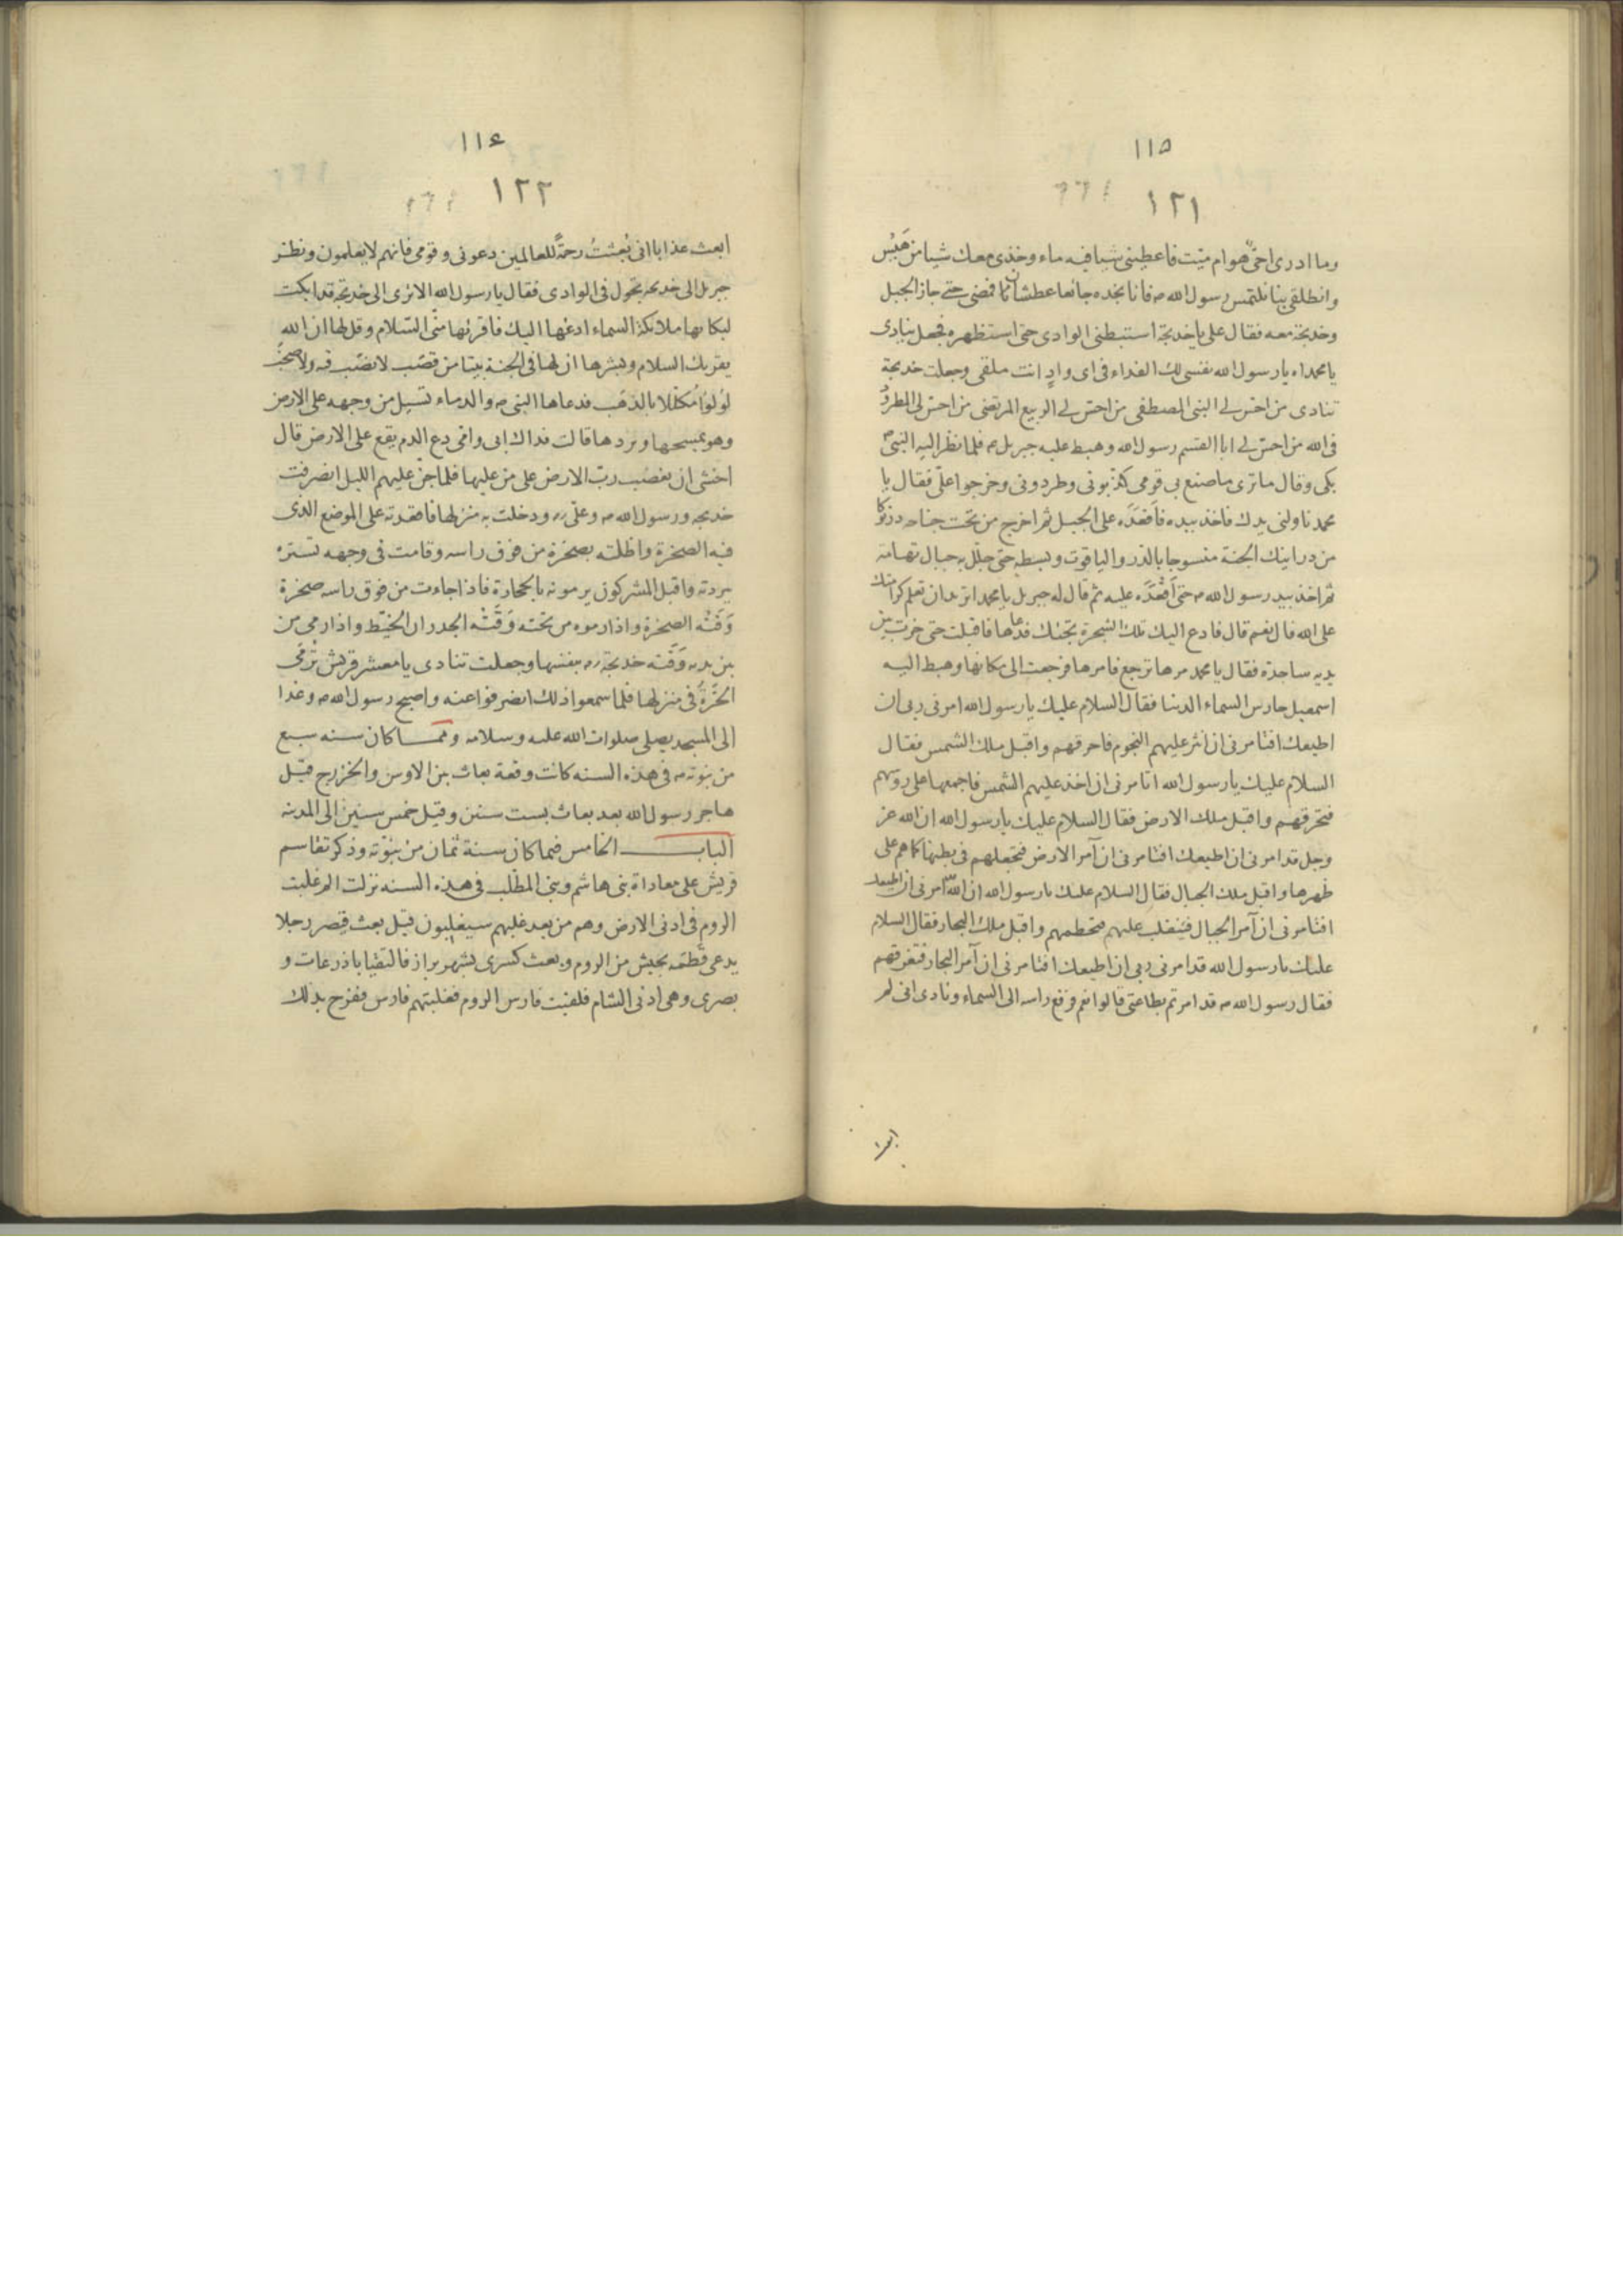 ١١٥
١٢١
وما ادرى احىّ هوام ميّت فاعطينى شيا فيه ماء وخذى معك شيا من هَيْس
وانطلقى بنا نلتمس رسول الله ص فانا نجده جائعا عطشانا فمضى حتى جاز الجبل
وخديجة معه فقال على يا خديجة استبطنى الوادى حتى استظهره فجعل ينادى
يا محمداه يا رسول الله نفسى لك الفداء فى اى وادٍ انت ملقى وجعلت خديجة
تنادى من احسّ لى النبى المصطفى من احسّ لى الربيع المرتضى من احسّ لى المطرود
فى الله من احسّ لى ابا القسم رسول الله وهبط عليه جبريل ع فلما نظر اليه النبىّ ص
بكى وقال ما ترى ما صنع بى قومى كذّبونى وطردونى وخرجوا علىّ فقال يا
محمد ناولنى يدك فاخذ بيده فاقعَدَه على الجبل ثم اخرج من تحت جناحه درنوكا
من درانيك الجنة منسوجا بالدر والياقوت وبسطه حتى جلّل به جبال تهامة
ثم اخذ بيد رسول الله ص حتى اَقْعَدَه عليه ثم قال له جبريل يا محمد اتريد ان تعلم كرامتك
على الله قال نعم قال فادع اليك تلك الشجرة تجئك فدعاها فاقبلت حتى خرت بين
يديه ساجدة فقال يا محمد مرها ترجع فامرها فرجعت الى مكانها وهبط اليه
اسمعيل حارس السماء الدنيا فقال السلام عليك يا رسول الله امرنى ربى ان
اطيعك افتامرنى ان انثر عليهم النجوم فاحرقهم واقبل ملك الشمس فقال
السلام عليك يا رسول الله اتامرنى ان اخذ عليهم الشمس فاجمعها على رؤسهم
فتحرقهم واقبل ملك الارض فقال السلام عليك يا رسول الله ان الله عز
وجل قد امرنى ان اطيعك افتامرنى ان آمر الارض فتجعلهم فى بطنها كما هم على
ظهرها واقبل ملك الجبال فقال السلام عليك يا رسول الله ان الله امرنى ان اطيعك
افتامرنى ان آمر الجبال فتنقلب عليهم فتحطمهم واقبل ملك البحار فقال السلام
عليك يا رسول الله قد امرنى ربى ان اطيعك افتامرنى ان آمر البحار فتغرقهم
فقال رسول الله ص قد امرتم بطاعتى قالوا نعم فرفع راسه الى السماء ونادى انى لم
ابعث
١١٤
١٢٢
ابعث عذابا انى بُعِثتُ رحمةً للعالمين دعونى وقومى فانهم لا يعلمون ونظر
جبريل الى خديجه تجول فى الوادى فقال يا رسول الله الا ترى الى خديجة قد ابكت
لبكائها ملائكة السماء ادعُها اليك فاقرئها منّى السّلام وقل لها ان الله
يقريك السلام وبشرها ان لها فى الجنة بيتا من قصَب لا نصَب فيه ولا صخَب
لؤلؤا مُكلّلا بالذهَب فدعاها النبى ص والدماء تسيل من وجهه على الارض
وهو يمسحها ويردها قالت فداك ابى وامّى دع الدم يقع على الارض قال
اخشى ان يغضب ربّ الارض على من عليها فلما جنّ عليهم الليل انصرفت
خديجه ورسول الله ص وعلى رر ودخلت به منزلها فاقعدته على الموضع الذى
فيه الصخرة واظلته بصخرة من فوق راسه وقامت فى وجهه تستره
ببردته واقبل المشركون يرمونه بالحجارة فاذا جاءت من فوق راسه صخرة
وَقَتْه الصخرة واذا رموه من تحته وَقَتْه الجدران الحُيّط واذا رمى من
بين يديه وَقَته خديجة رر بنفسها وجعلت تنادى يا معشر قريش تُرمَى
الحُرّة فى منزلها فلما سمعوا ذلك انصرفوا عنه واصبح رسول الله ص وغدا
الى المسجد يصلى صلوات الله عليه وسلامه وممّا كان سنه سبع
من نبوته ص فى هذه السنه كانت وقعة بعاث بين الاوس والخزرج قبل
هاجر رسول الله بعد بعاث بست سنين وقيل خمس سنين الى المدينه
الباب الخامس فيما كان سنة ثمان من نبوّته وذكر تقاسم
قريش على معاداة بنى هاشم وبنى المطّلب فى هذه السنه نزلت الم غلبت
الروم فى ادنى الارض وهم من بعد غلبهم سيغلبون قيل بعث قيصر رجلا
يدعى قطمه بجيش من الروم وبعث كسرى بشهربراز فالتقيا باذرعات و
بصرى وهى ادنى الشام فلقيت فارس الروم فغلبتهم فارس ففرح بذلك